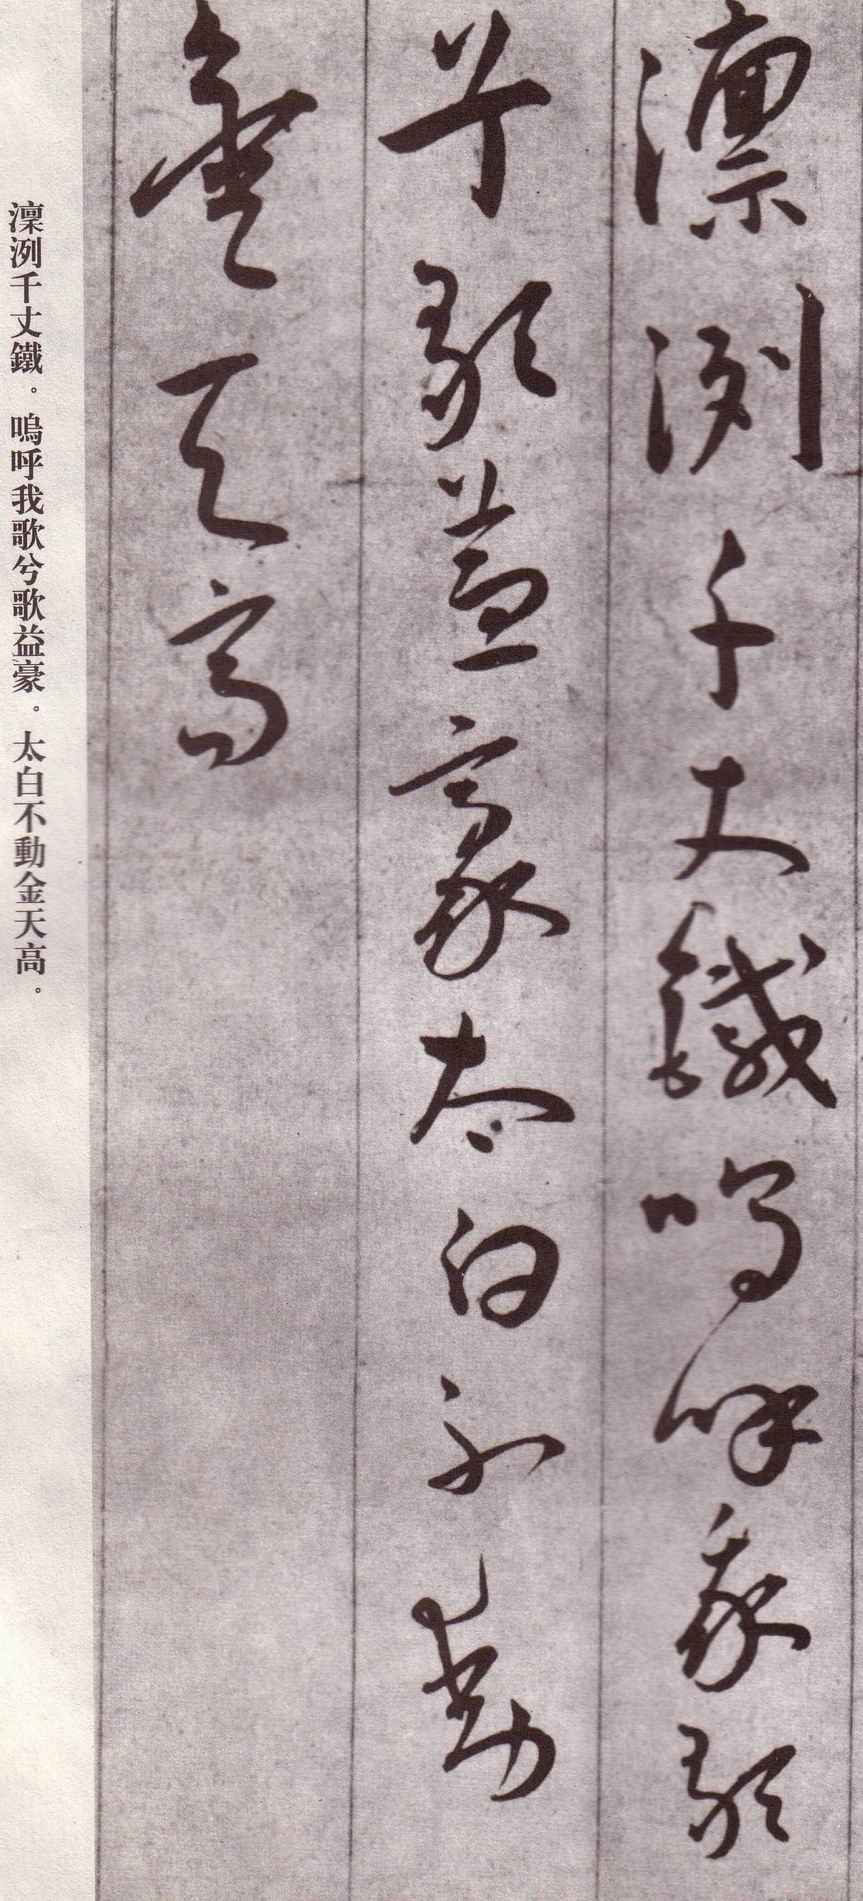 凛冽千丈鐵嗚呼我歌
兮歌益豪太白不動
金天高
凛洌千丈鐵。嗚呼我歌兮歌益豪。太白不動金天高。